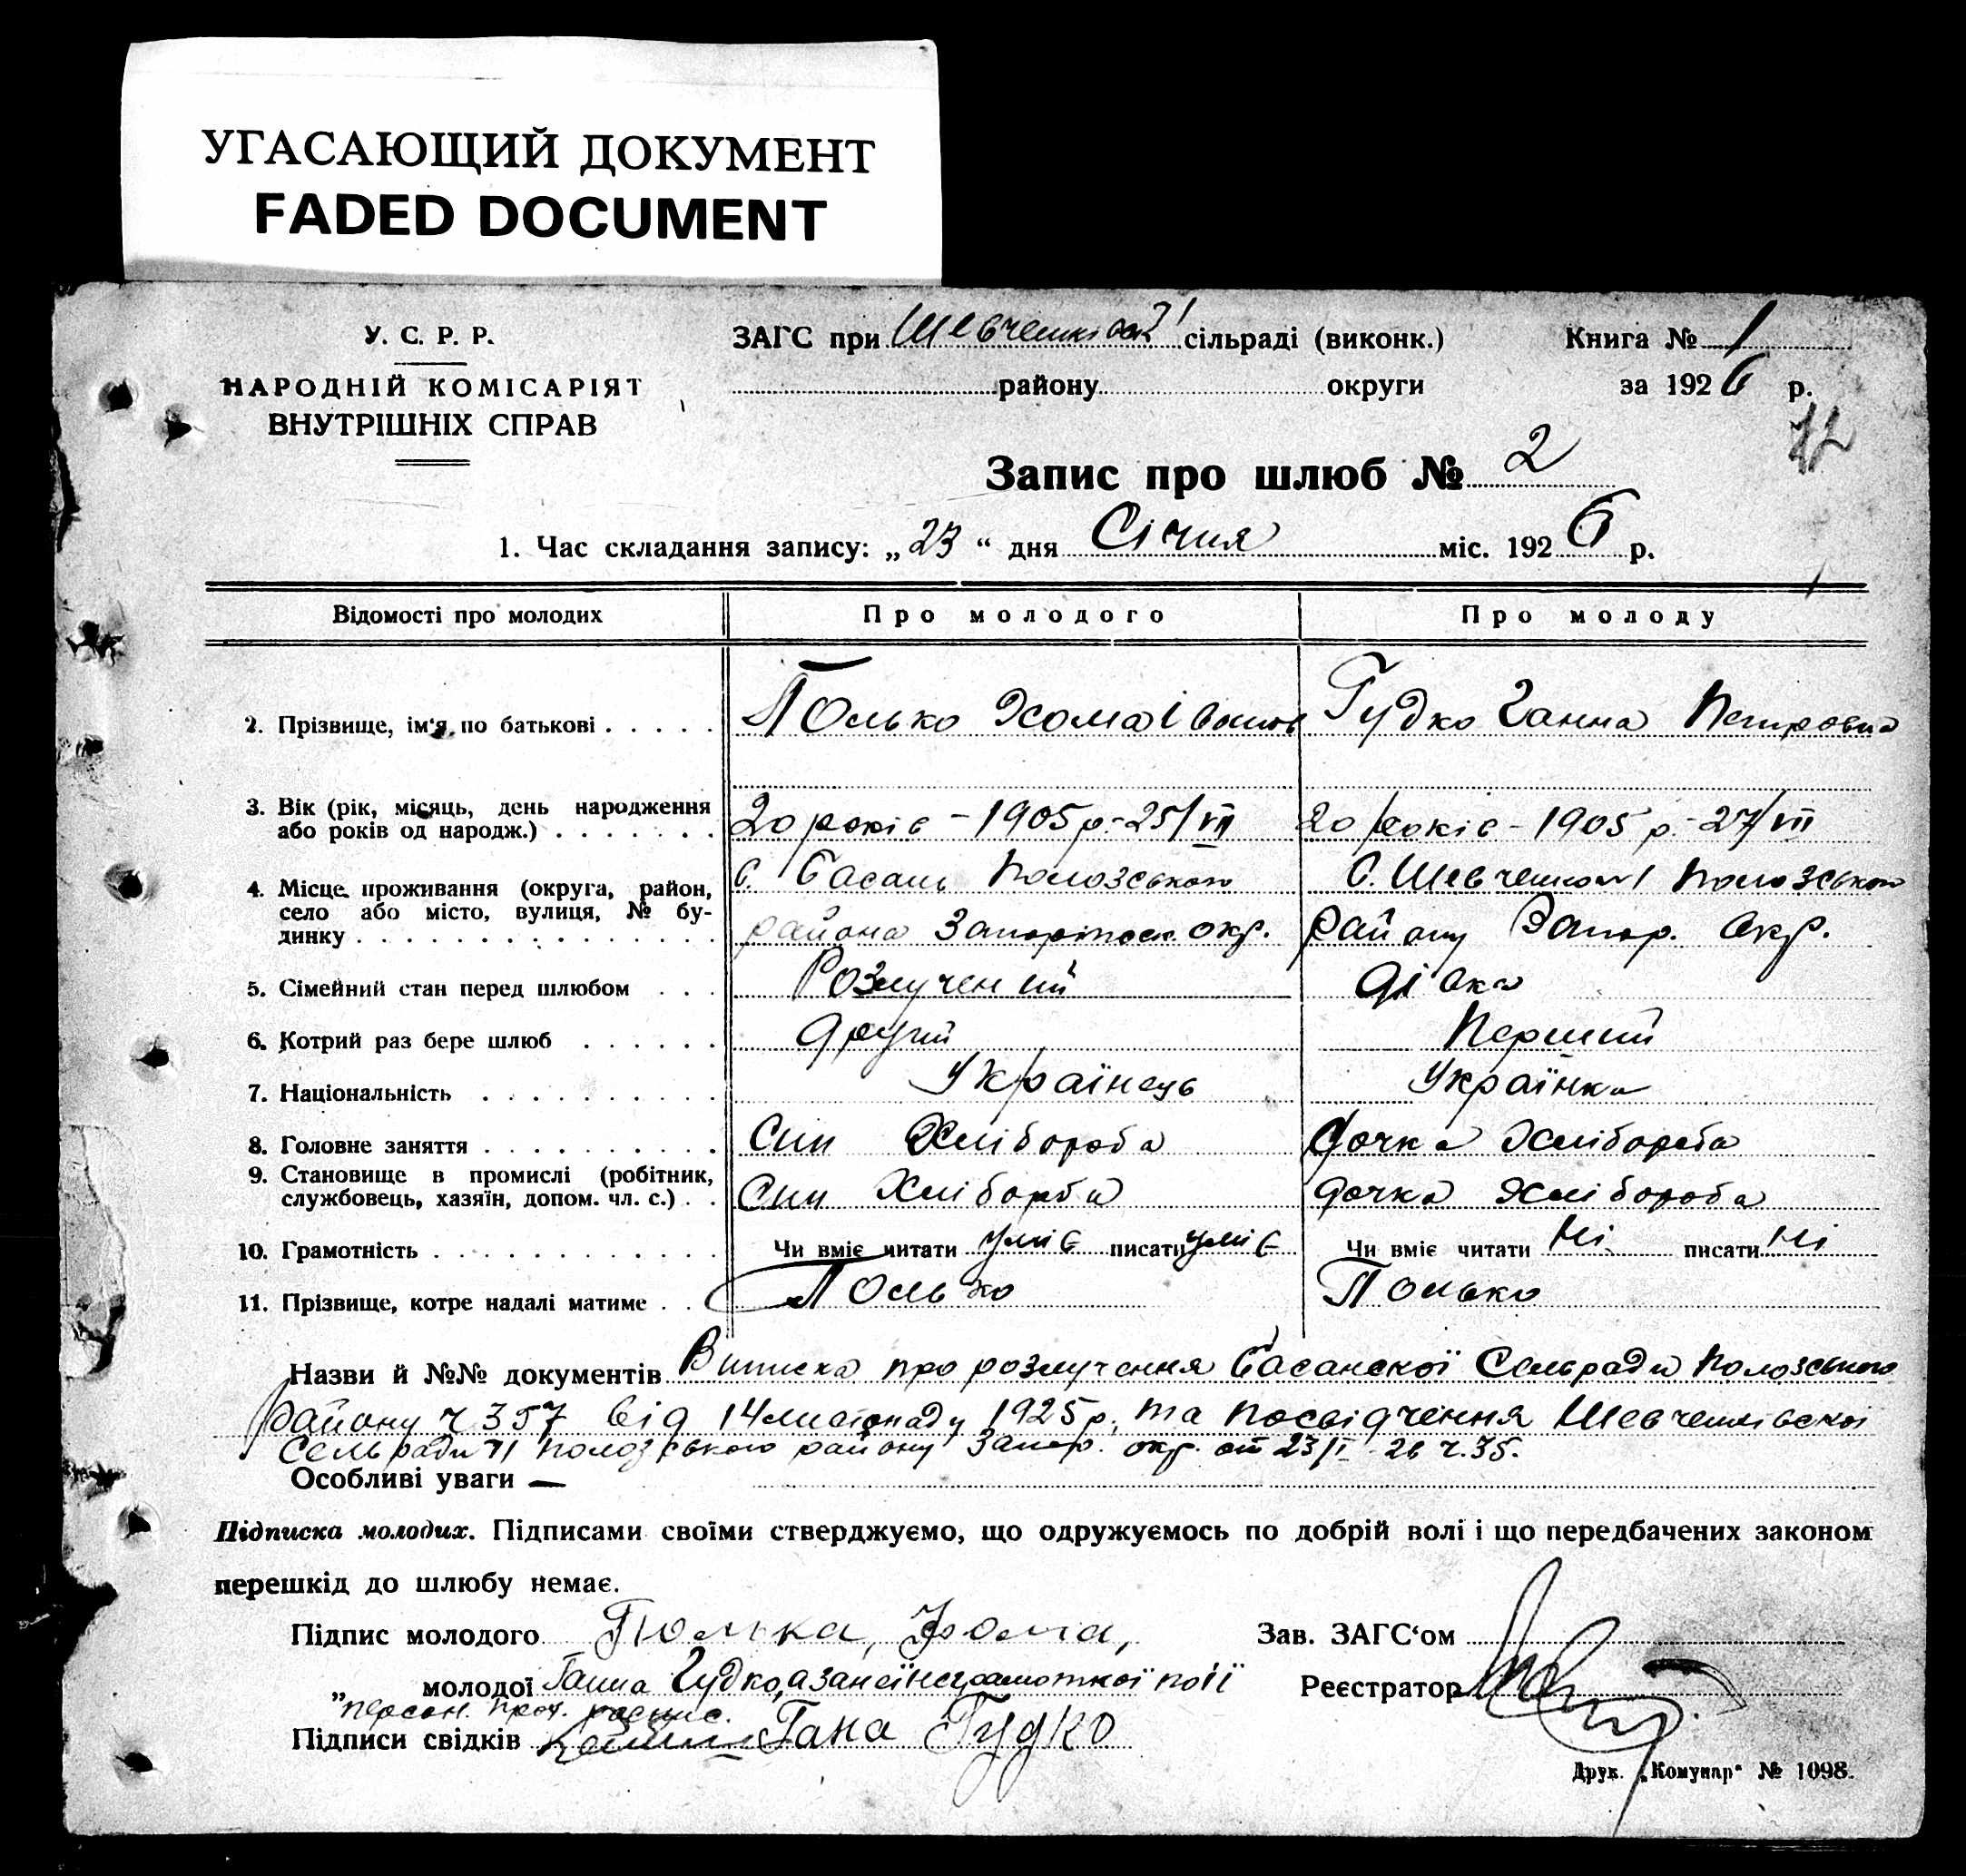 УГАСАЮЩИЙ ДОКУМЕНТ
FADED DOCUMENT
У. С. Р. Р.
НАРОДНІЙ КОМІСАРІЯТ
ВНУТРІШНІХ СПРАВ
ЗАГС при сільраді (виконк.)
району округи
Книга № 1
за 1926 р.
Запис про шлюб № 2
1. Час складання запису: „23“ дня Січня міс. 1926 р.
Відомості про молодих
Про молодого
Про молоду
2. Прізвище, ім‘я, по батькові . . . . . Полько Хома Іванов Гудко Ганна Петровна
3. Вік (рік, місяць, день народження
або років од народж.) . . . . . . . 20 років - 1905 р. - 25/VII 20 років - 1905 р. - 27/VII
4. Місце проживання (округа, район, с. Басань Пологського с. Шевченково І Пологського
село або місто, вулиця, № бу-
динку . . . . . . . . . . . . . . . района окр. району Запор. Окр.
5. Сімейний стан перед шлюбом . . . Розлучений дівка
6. Котрий раз бере шлюб . . . . . . другий Перший
7. Національність . . . . . . . . . . Українець Українка
8. Головне заняття . . . . . . . . . . Син Хлібороба Дочка Хлібороба
9. Становище в промислі (робітник,
службовець, хазяїн, допом. чл. с.) . . Син Хлібороба дочка Хлібороба
10. Грамотність . . . . . . . . . . . . Чи вміє читати уміє писати уміє Чи вміє читати Ні писати Ні
11. Прізвище, котре надалі матиме . . Полько Полько
Назви й №№ документів Виписка про розлучення Басанскої Сельради Пологського
району ч 357 від 14 листопаду 1925 р. та посвідчення Шевченківскої
Сельради Пологського району Запор. окр. от 23/I - 26 ч. 35.
Особливі уваги —
Підписка молодих. Підписами своїми стверджуємо, що одружуємось по добрій волі і що передбачених законом
перешкід до шлюбу немає.
Підпис молодого Полька, Фома,
„ молодої Ганна Гудко, а за неї неграмотної по її
персон. прох. роспис.
Підписи свідків Гана Гудко
Зав. ЗАГС‘ом
Реєстратор
Друк. „Комунар“ № 1098.